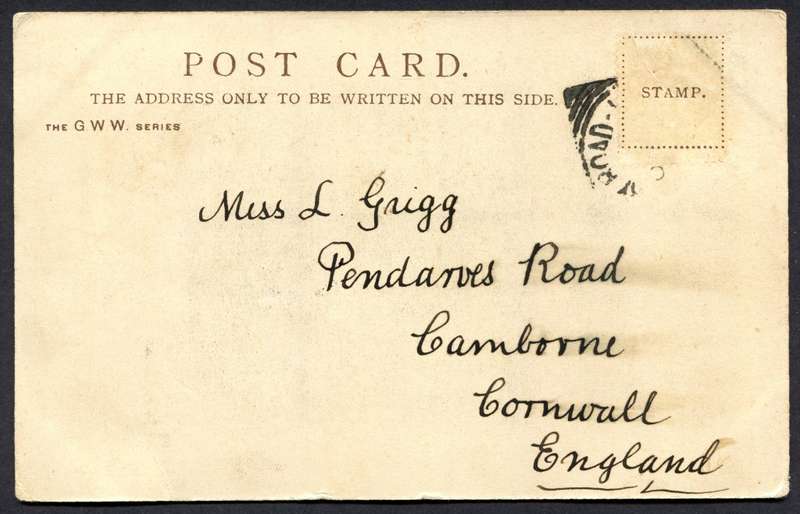 POST CARD.
THE ADDRESS ONLY TO BE WRITTEN ON THIS SIDE.
THE G.W.W. SERIES
STAMP.
ROAD
Miss L. Grigg
Pendarves Road
Camborne
Cornwall
England